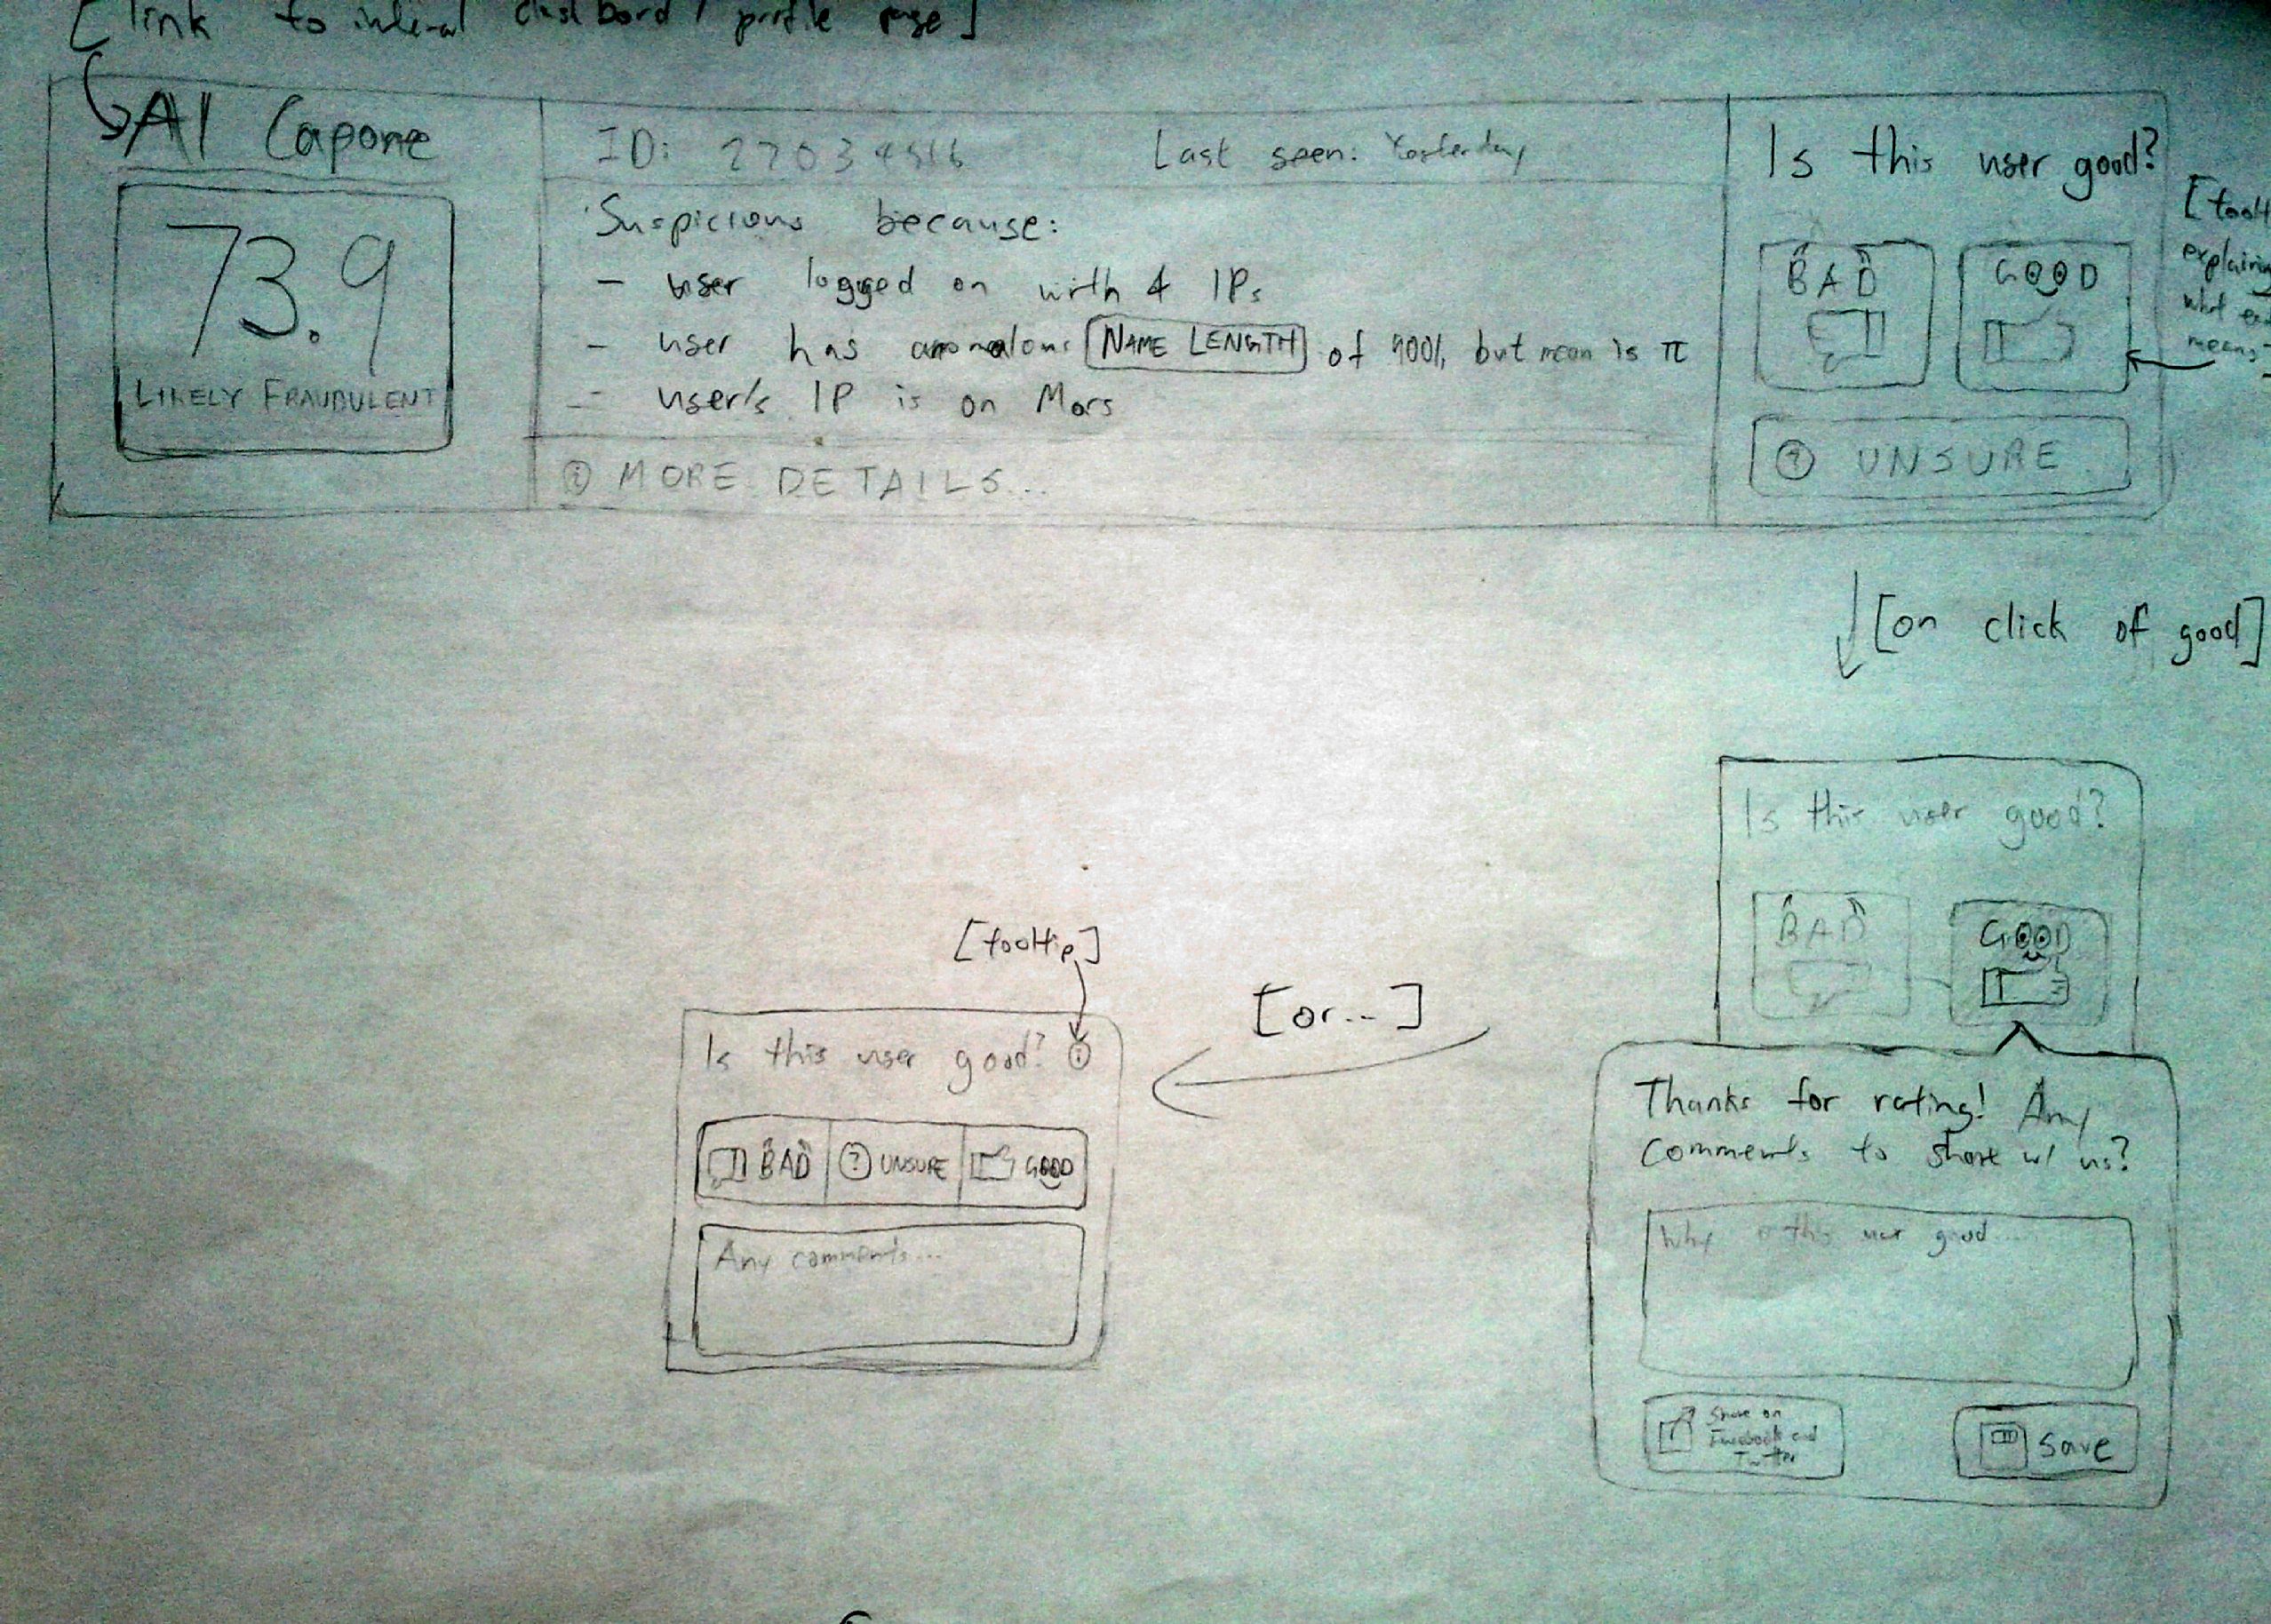 [link to internal dashboard / profile page]
Al Capone
73.9
LIKELY FRAUDULENT
ID: 22034516
Last seen: Yesterday
Suspicious because:
- user logged on with 4 IPs
- user has anomalous NAME LENGTH of 9001, but mean is π
- user's IP is on Mars
MORE DETAILS...
Is this user good?
BAD
GOOD
? UNSURE
explaining
what
means
[on click of good]
Is this user good?
BAD
GOOD
Thanks for rating! Any
comments to share w/ us?
Why is this user good...
Share on
Facebook and
Twitter
Save
[or...]
[tooltip]
Is this user good? i
BAD
? UNSURE
GOOD
Any comments...